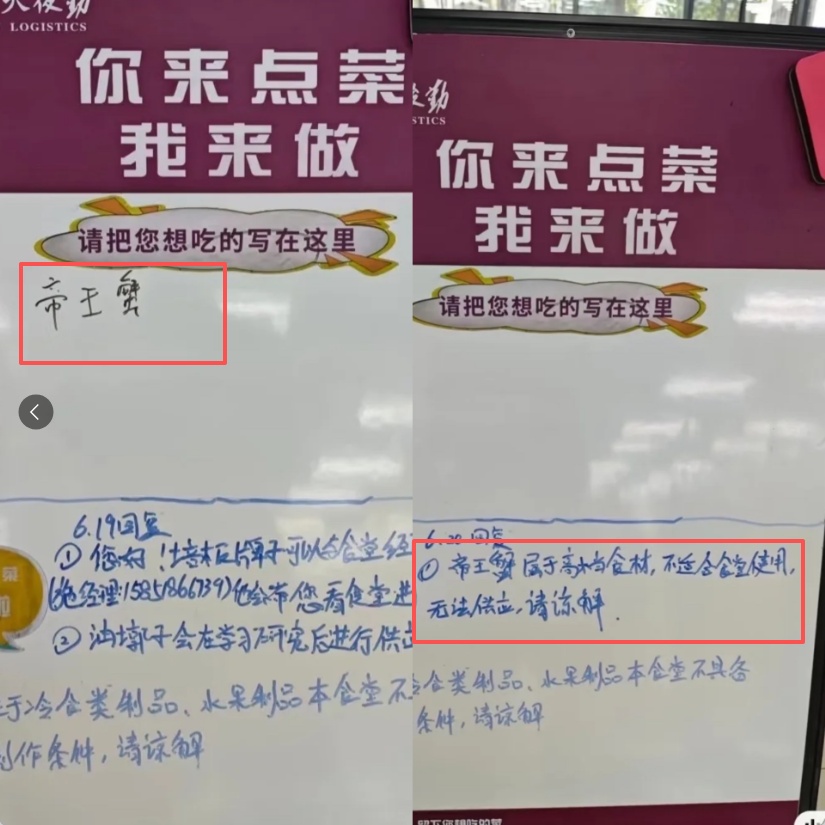 LOGISTICS
你来点菜
我来做
请把您想吃的写在这里
帝王蟹
6.19回复
①您好！培根牌子可以与食堂经
经理:15851866739)他会带您看食堂进
②油墩子会在学习研究后进行供应
于冷食类制品、水果制品本食堂不
制作条件，请谅解
菜
STICS
你来点菜
我来做
请把您想吃的写在这里
回复
①帝王蟹属于高档食材,不适合食堂使用,
无法供应,请谅解.
冷食类制品、水果制品本食堂不具备
条件，请谅解
留下您想吃的菜